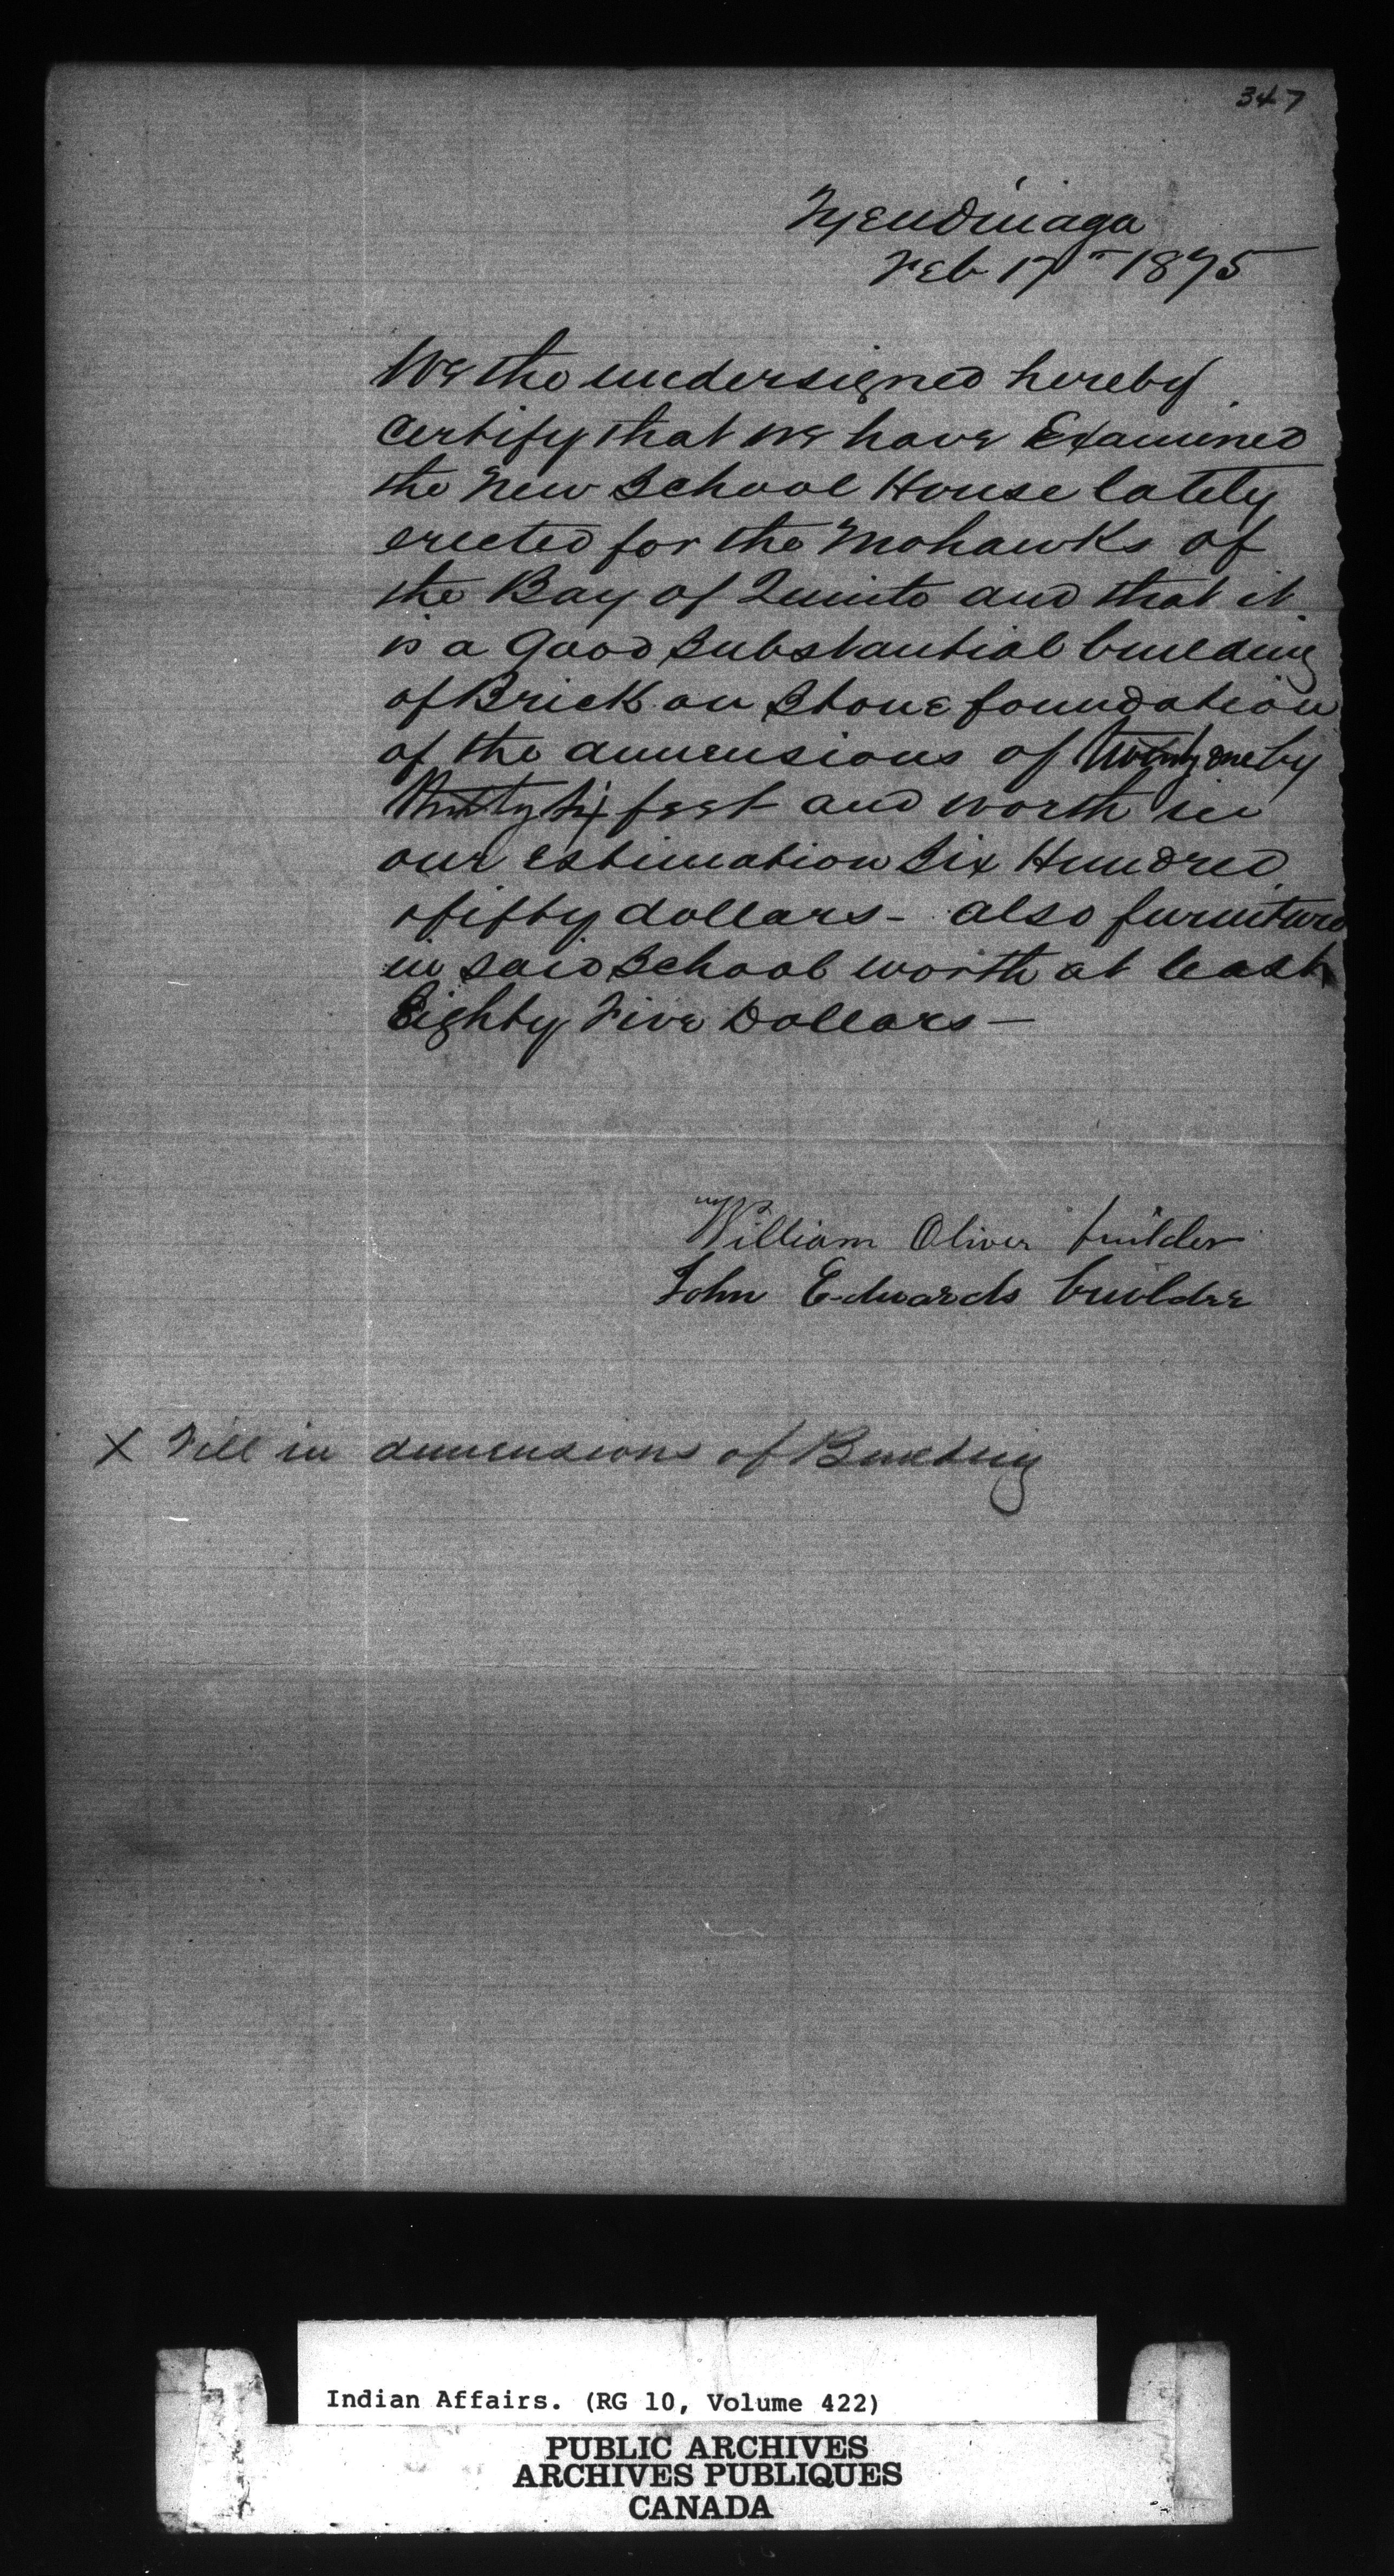 347
Tyendinaga
Feb 17th 1875
We the undersigned hereby
certify that we have Examined
the New School House lately
erected for the Mohawks of
the Bay of Quinte and that it
is a good substantial building
of Brick on Stone foundation
of the dimensions of twenty one by
thirty six feet and worth in
our estimation Six Hundred
fifty dollars - also furniture
in said School worth at least
Eighty Five Dollars -
William Oliver builder
John Edwards builder
X Fill in dimensions of Building
Indian Affairs. (RG 10, Volume 422)
PUBLIC ARCHIVES
ARCHIVES PUBLIQUES
CANADA